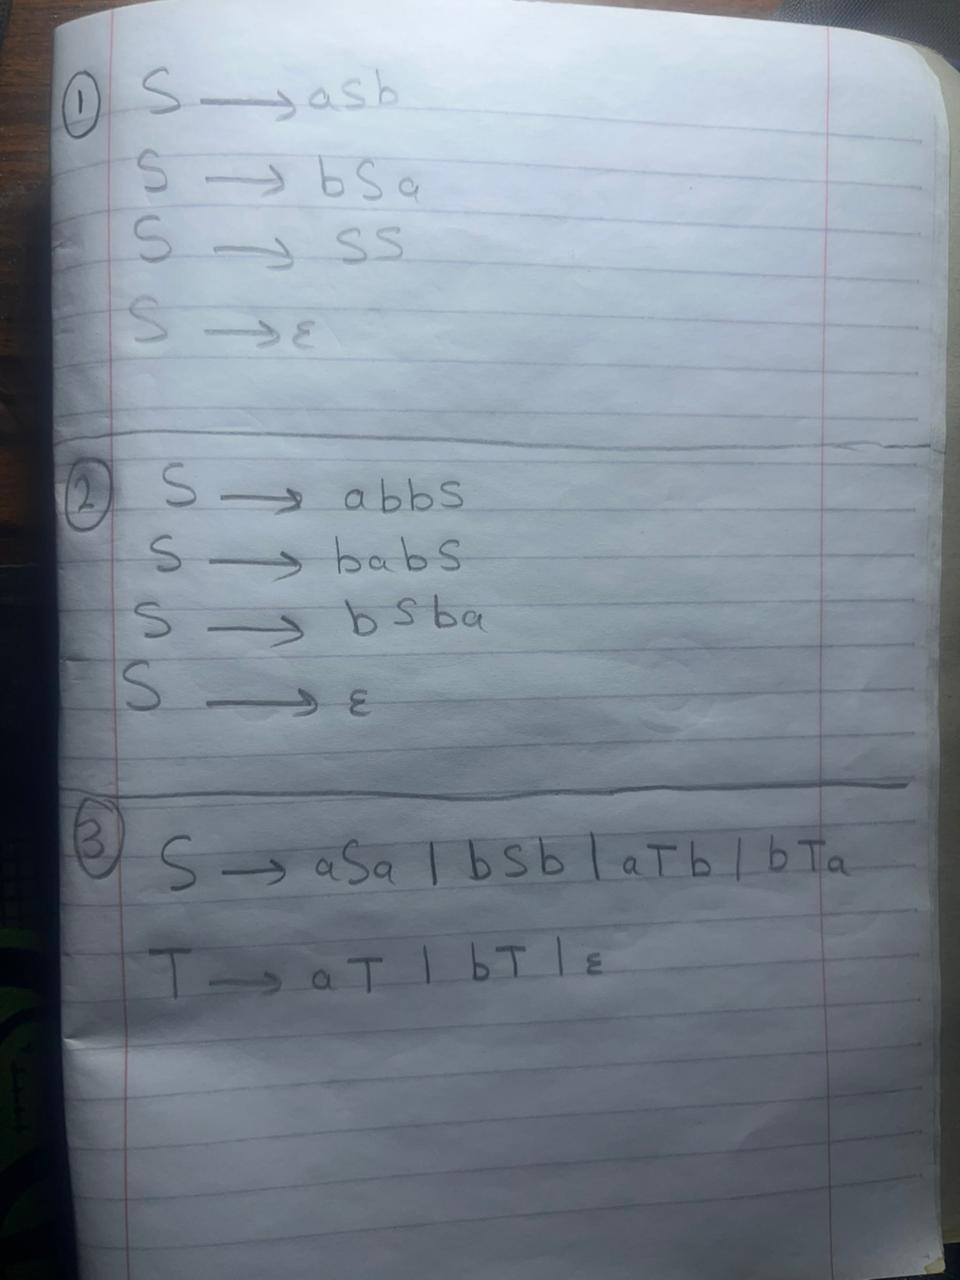 ① S → aSb
S → bSa
S → SS
S → ε
② S → abbS
S → babS
S → bSba
S → ε
③ S → aSa | bSb | aTb | bTa
T → aT | bT | ε